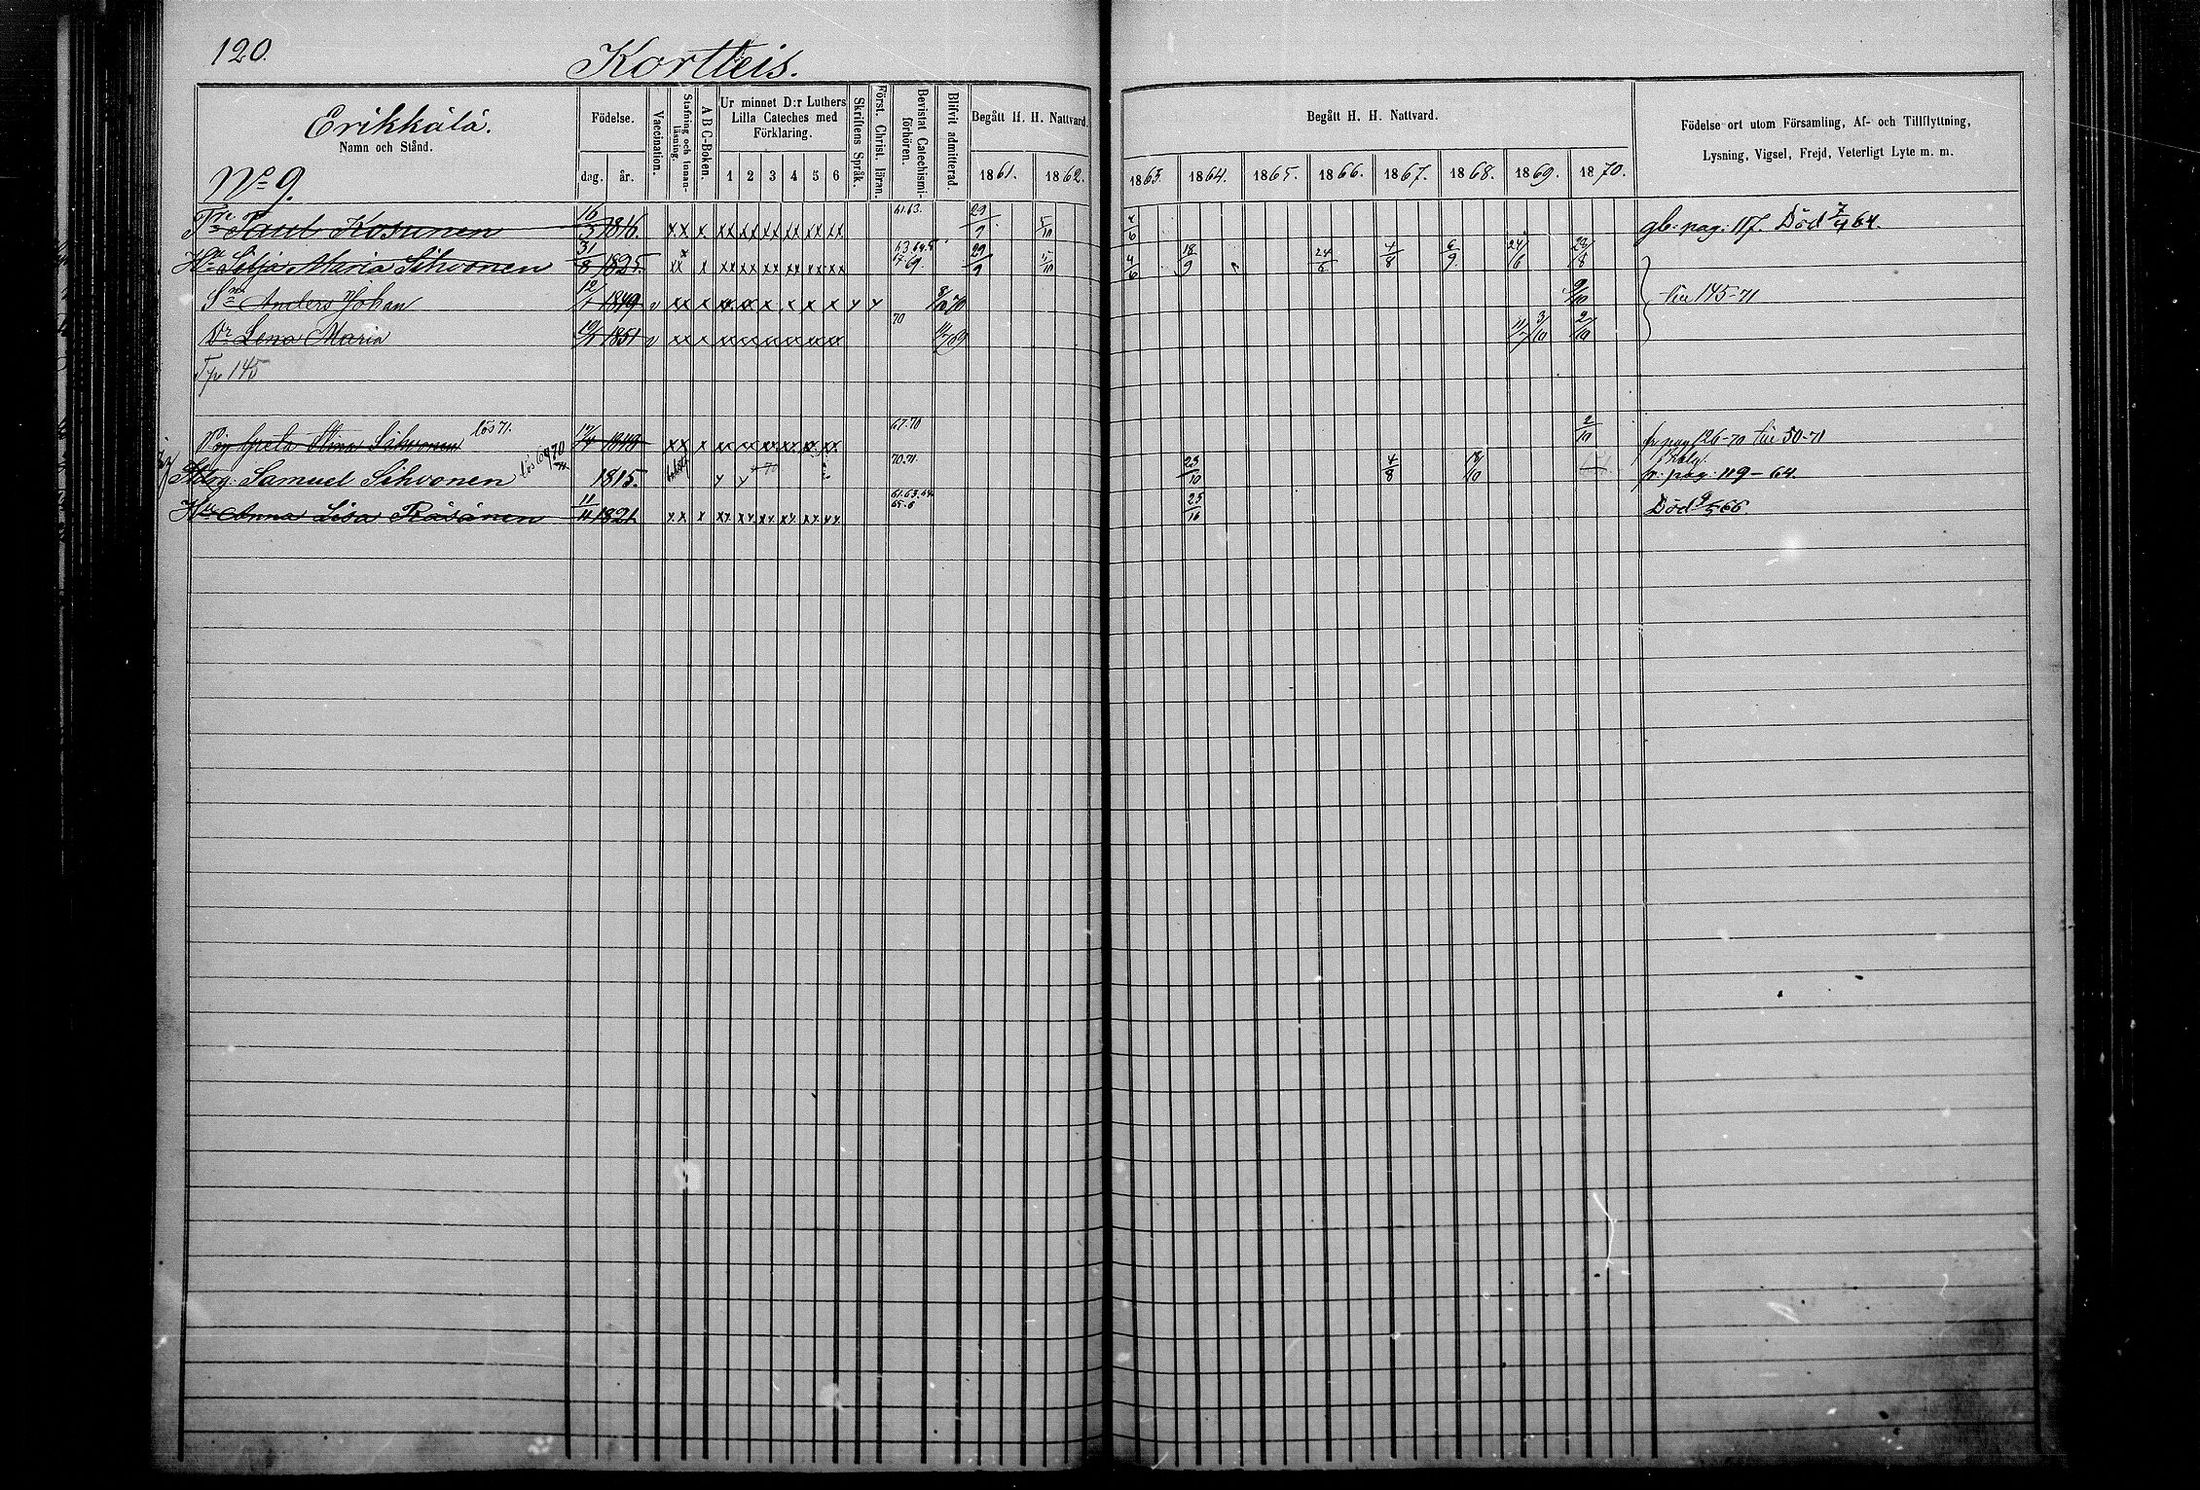 120.
Kortteis.
Erikkälä.
Namn och Stånd.
No 9.
Födelse.
dag. år.
Vaccination.
Stafning och Innanläsning.
A B C-Boken.
Ur minnet D:r Luthers Lilla Cateches med Förklaring.
1 2 3 4 5 6
Skriftens Språk.
Först. Christ. läran.
Bevistat Catechismiförhören.
Blifvit admitterad.
Begått H. H. Nattvard.
1861. 1862.
Begått H. H. Nattvard.
1863. 1864. 1865. 1866. 1867. 1868. 1869. 1870.
Födelse ort utom Församling, Af- och Tillflyttning,
Lysning, Vigsel, Frejd, Veterligt Lyte m. m.
Paul Kosunen 16/3 1816. xx x xx xx xx xx xx xx 61.63. 29/9 5/10 4/6 gb: pag: 117. Död 7/4 64.
Hu Silja Maria Sihvonen 31/8 1825. xx x xx xx xx xx xx xx 29/9 5/10 4/6 18/9 24/6 4/8 6/9 24/6 22/8
Sn Anders Johan 1849 v xx x 9/10 145-71
Dr Lena Maria 1851 v xx x xx xx xx xx xx xx 70 3/10 2/10
Tp 145
Greta Stina Sihvonen lös 71. xx x xx xx xx xx xx xx 67.70 2/10 fr pag 126-70 50-71
Samuel Sihvonen 1815. 70.71. 23/10 4/8 18/10 fr: pag: 119-64.
Hu Anna Lisa Räsänen 11/11 1821. xx x xx xx xx xx xx xx 61.63.64. Död 9/5 66.